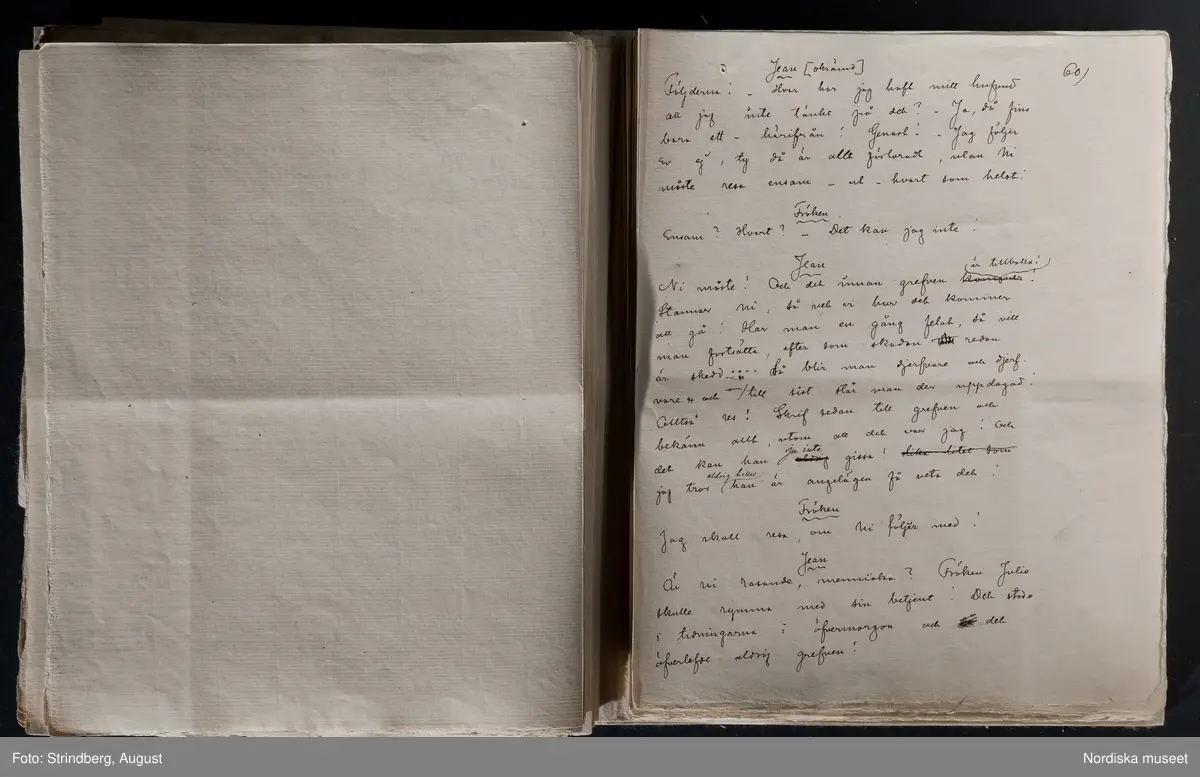 60)
Jean [skrämd]
Följderna! – Hvar har jag haft mitt hufvud
att jag inte tänkt på det? – Ja, då fins
bara ett – härifrån! Genast! – Jag följer
Er ej, ty då är allt förloradt, utan Ni
måste resa ensam – ut – hvart som helst!
Fröken
Ensam? Hvart? – Det kan jag inte!
Jean
är tillbaka!
Ni måste! Och det innan grefven kommer!
Stannar Ni, så vet vi hur det kommer
att gå! Har man en gång felat, så vill
man fortsätta, efter som skadan redan
är skedd .... Så blir man djerfvare och djerf-
vare och – till sist står man der uppdagad!
Alltså res! Skrif sedan till grefven och
bekänn allt, utom att det var jag! Och
ju inte
det kan han aldrig gissa! lika litet som
aldrig heller
jag tror han är angelägen få veta det!
Fröken
Jag skall resa, om Ni följer med!
Jean
Är Ni rasande, menniska? Fröken Julie
skulle rymma med sin betjent! Det stode
i tidningarna i öfvermorgon och det
öfverlefde aldrig grefven!
Foto: Strindberg, August
Nordiska museet